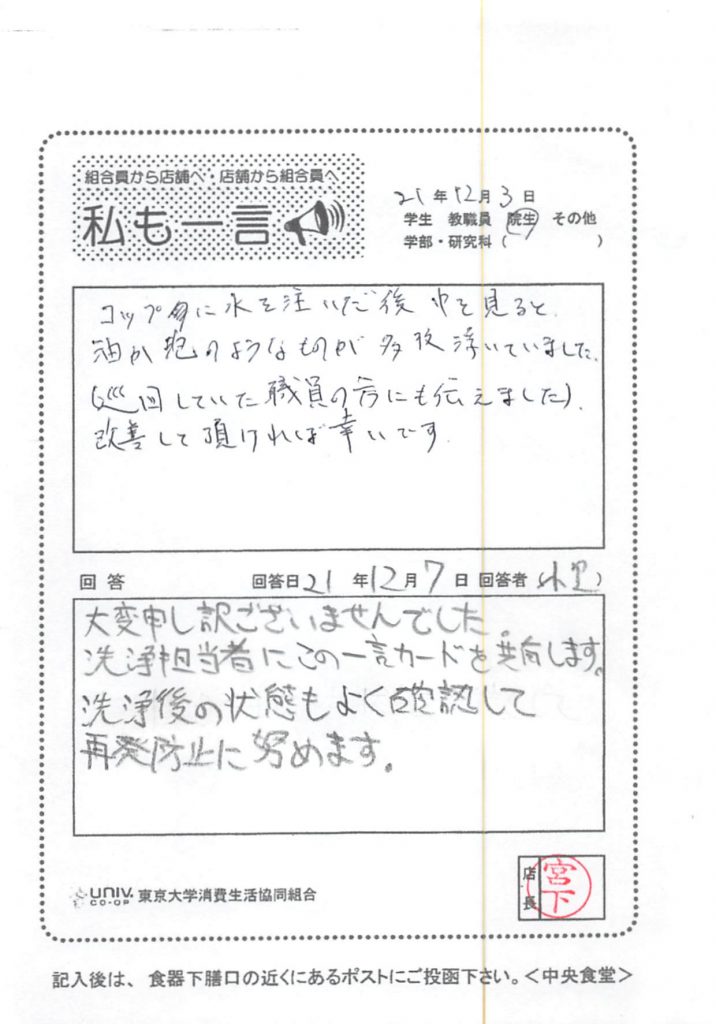 組合員から店舗へ・店舗から組合員へ
私も一言
21年12月3日
学生 教職員 院生 その他
学部・研究科( )
コップに水を注いだ後 中を見ると、
油か泡のようなものが多数浮いていました。
(巡回していた職員の方にも伝えました)。
改善して頂ければ幸いです.
回答 回答日21年12月7日 回答者( )
大変申し訳ございませんでした。
洗浄担当者にこの一言カードを共有します。
洗浄後の状態もよく確認して
再発防止に努めます。
UNIV. CO-OP 東京大学消費生活協同組合
店長 宮下
記入後は、食器下膳口の近くにあるポストにご投函下さい。<中央食堂>